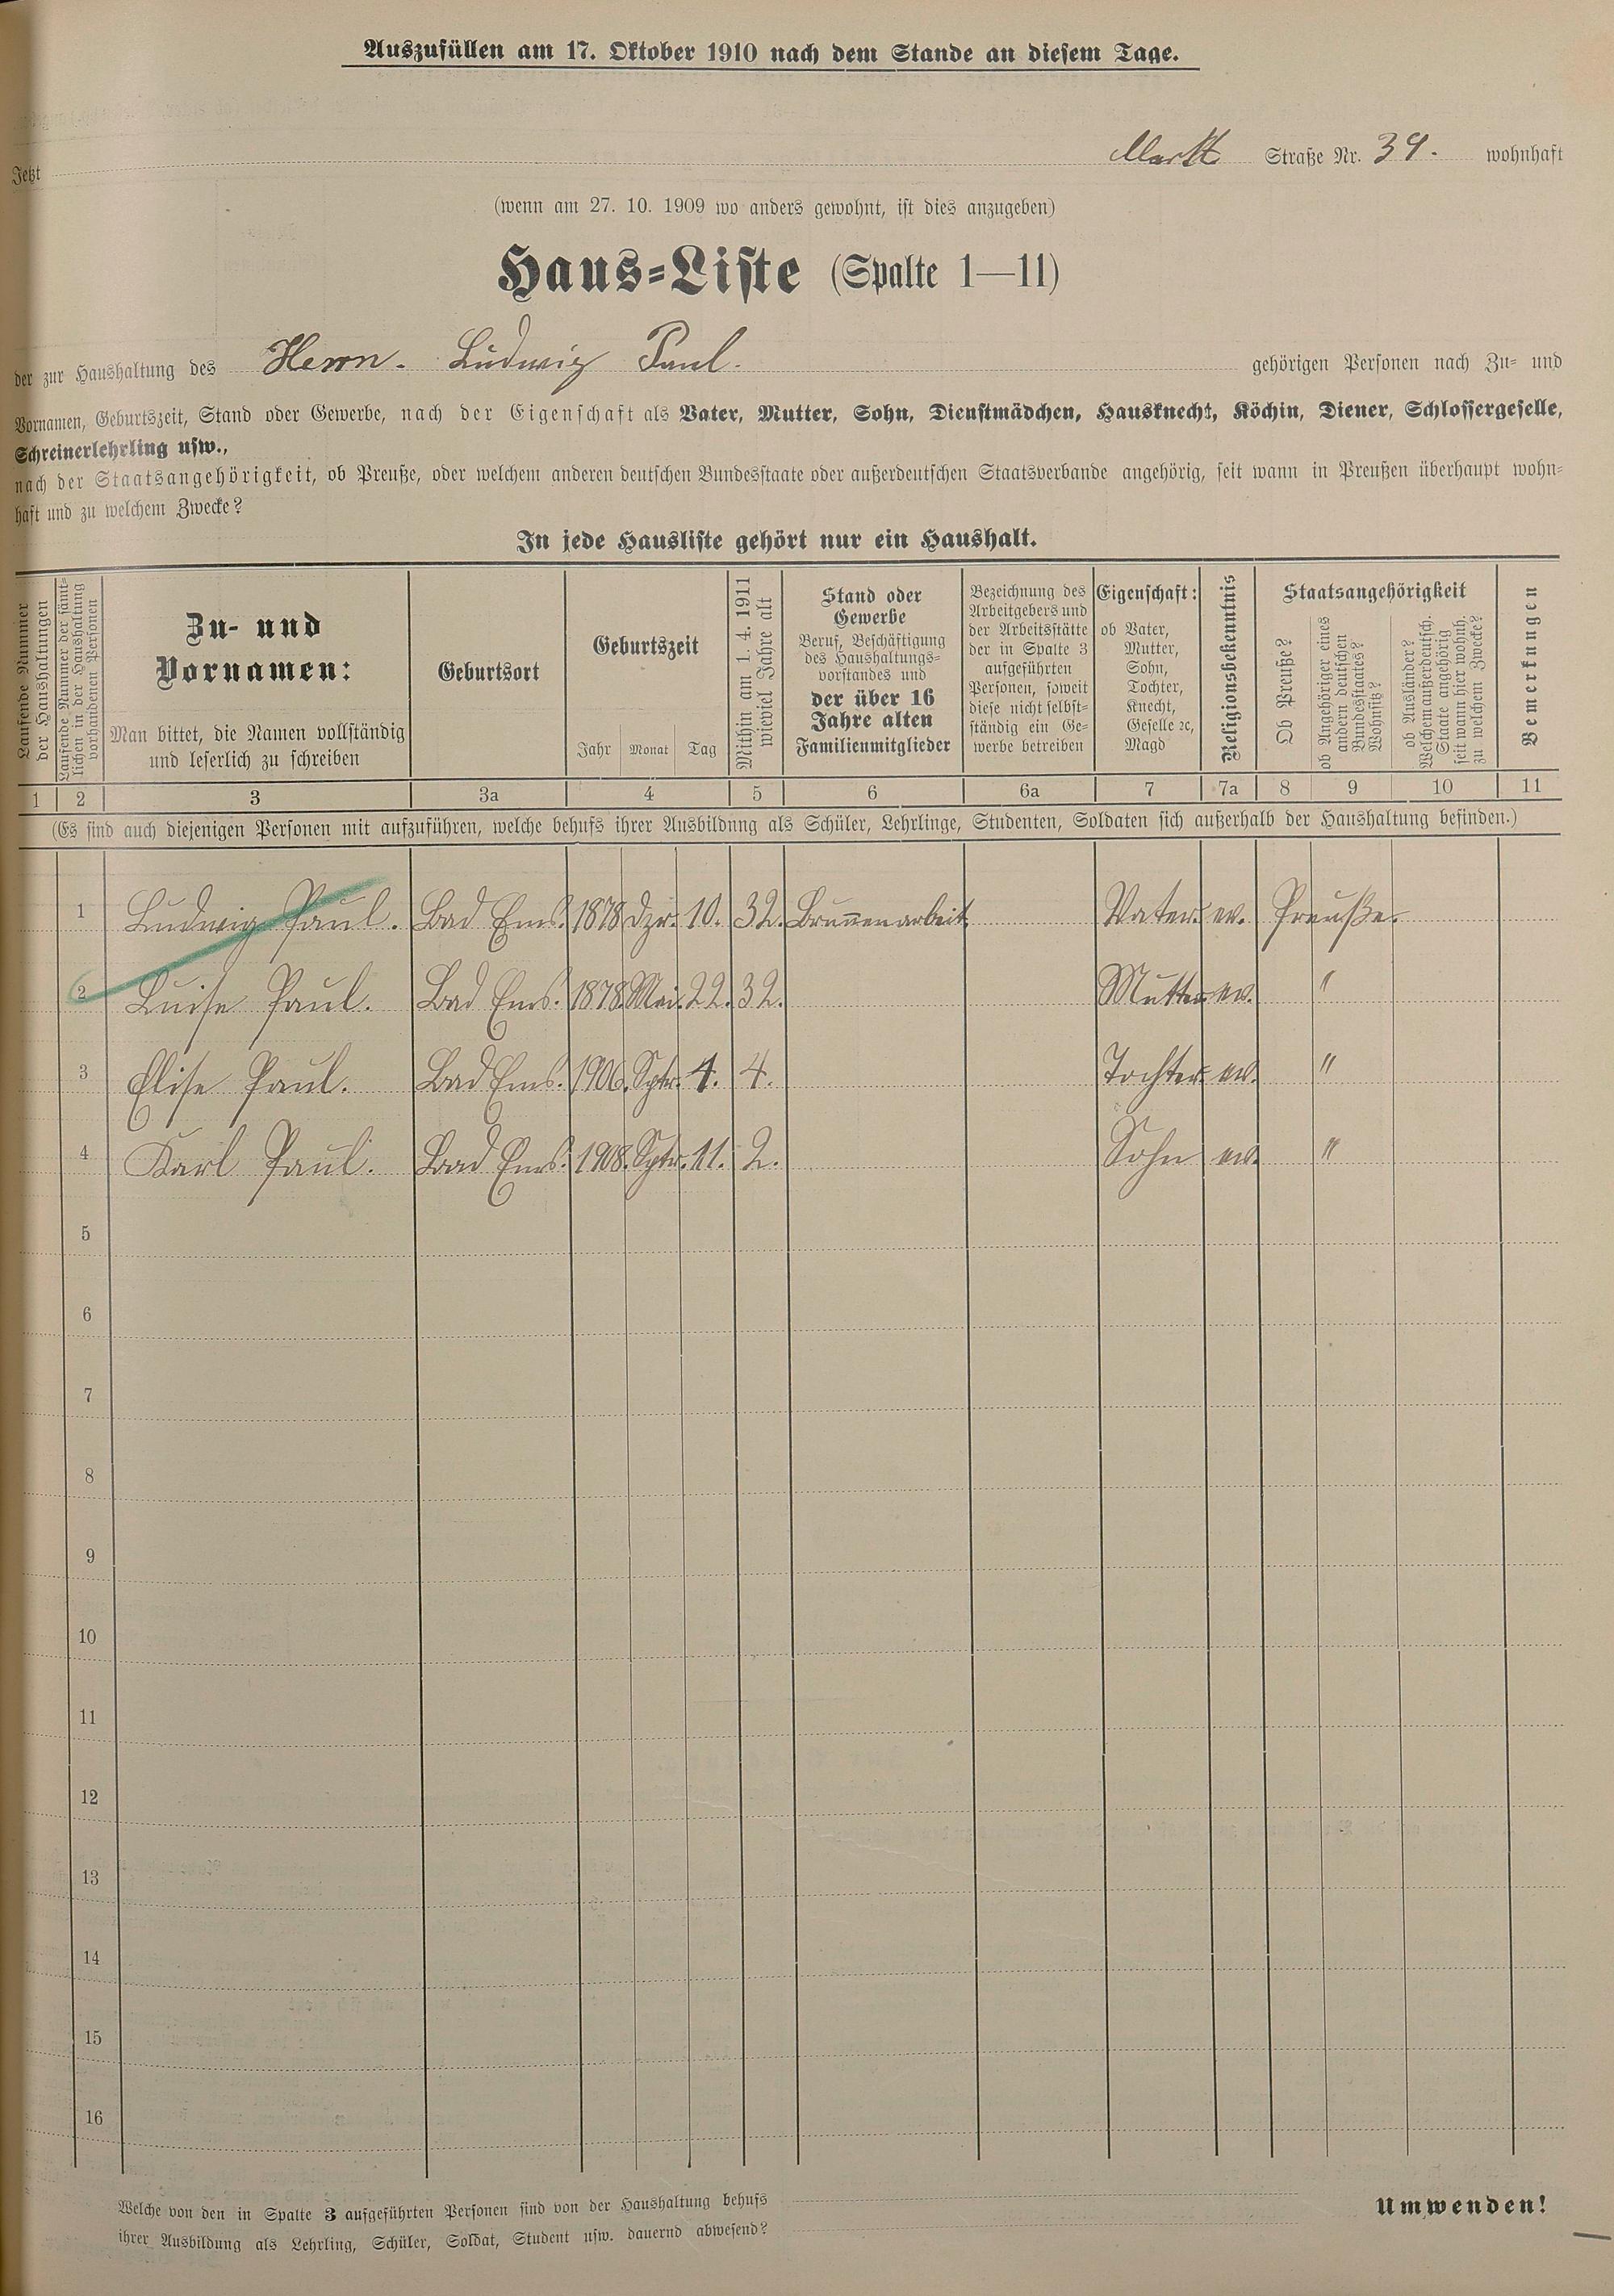 Auszufüllen am 17. Oktober 1910 nach dem Stande an diesem Tage.
Jetzt Markt Straße Nr. 39. wohnhaft
(wenn am 27. 10. 1909 wo anders gewohnt, ist dies anzugeben)
Haus=Liste (Spalte 1—11)
der zur Haushaltung des Herrn. Ludwig Paul. gehörigen Personen nach Zu= und
Vornamen, Geburtszeit, Stand oder Gewerbe, nach der Eigenschaft als Vater, Mutter, Sohn, Dienstmädchen, Hausknecht, Köchin, Diener, Schlossergeselle,
Schreinerlehrling usw.,
nach der Staatsangehörigkeit, ob Preuße, oder welchem anderen deutschen Bundesstaate oder außerdeutschen Staatsverbande angehörig, seit wann in Preußen überhaupt wohn=
haft und zu welchem Zwecke?
In jede Hausliste gehört nur ein Haushalt.
Laufende Nummer
der Haushaltungen
Laufende Nummer der sämt=
lichen in der Haushaltung
vorhandenen Personen
Zu- und
Vornamen:
Man bittet, die Namen vollständig
und leserlich zu schreiben
Geburtsort
Geburtszeit
Jahr Monat Tag
Mithin am 1. 4. 1911
wieviel Jahre alt
Stand oder
Gewerbe
Beruf, Beschäftigung
des Haushaltungs=
vorstandes und
der über 16
Jahre alten
Familienmitglieder
Bezeichnung des
Arbeitgebers und
der Arbeitsstätte
der in Spalte 3
aufgeführten
Personen, soweit
diese nicht selbst=
ständig ein Ge=
werbe betreiben
Eigenschaft:
ob Vater,
Mutter,
Sohn,
Tochter,
Knecht,
Geselle ꝛc,
Magd
Religionsbekenntnis
Staatsangehörigkeit
Ob Preuße?
ob Angehöriger eines
andern deutschen
Bundesstaates?
Wohnsitz?
ob Ausländer?
Welchem außerdeutsch.
Staate angehörig
seit wann hier wohnh.
zu welchem Zwecke?
Bemerkungen
1 2 3 3a 4 5 6 6a 7 7a 8 9 10 11
(Es sind auch diejenigen Personen mit aufzuführen, welche behufs ihrer Ausbildung als Schüler, Lehrlinge, Studenten, Soldaten sich außerhalb der Haushaltung befinden.)
1 Ludwig Paul. Bad Ems. 1878 Dzr. 10. 32. Brunnenarbeit. Vater. ev. Preuße.
2 Luise Paul. Bad Ems. 1878. Mai. 22. 32. Mutter ev. "
3 Elise Paul. Bad Ems. 1906. Sptr. 4. 4. Tochter. ev. "
4 Karl Paul. Bad Ems. 1908. Sptr. 11. 2. Sohn ev. "
5
6
7
8
9
10
11
12
13
14
15
16
Welche von den in Spalte 3 aufgeführten Personen sind von der Haushaltung behufs
ihrer Ausbildung als Lehrling, Schüler, Soldat, Student usw. dauernd abwesend?
Umwenden!